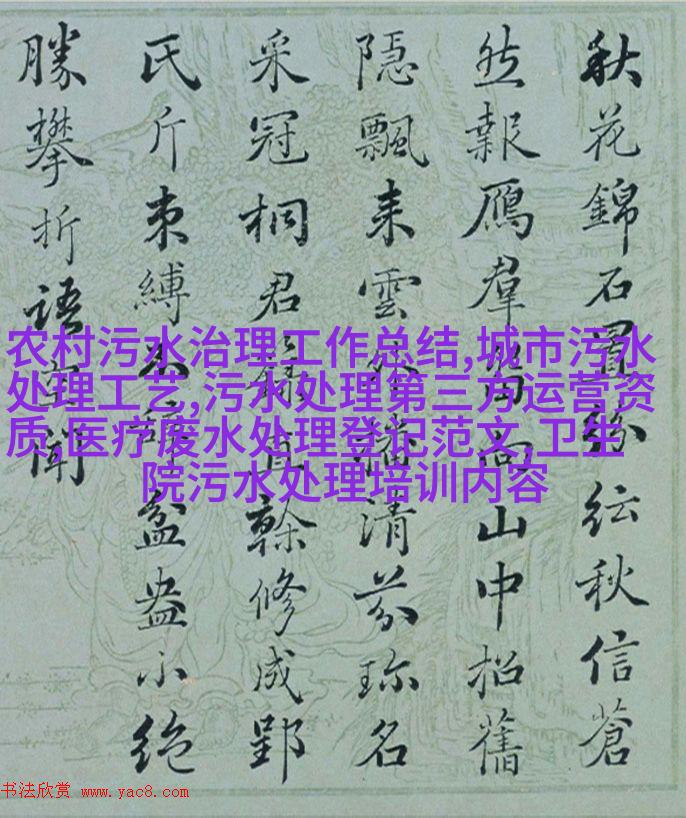 秋花錦石紛紜秋信蒼
然報鴈羣向山中招舊
隱飄来雲外清芬珍名
采冠桐君錄直榦修成郢
氏斤束縛不辭盆盎小絶
勝攀折語空聞
农村污水治理工作总结,城市污水
处理工艺,污水处理第三方运营资
质,医疗废水处理登记范文,卫生
院污水处理培训内容
书法欣赏 www.yac8.com